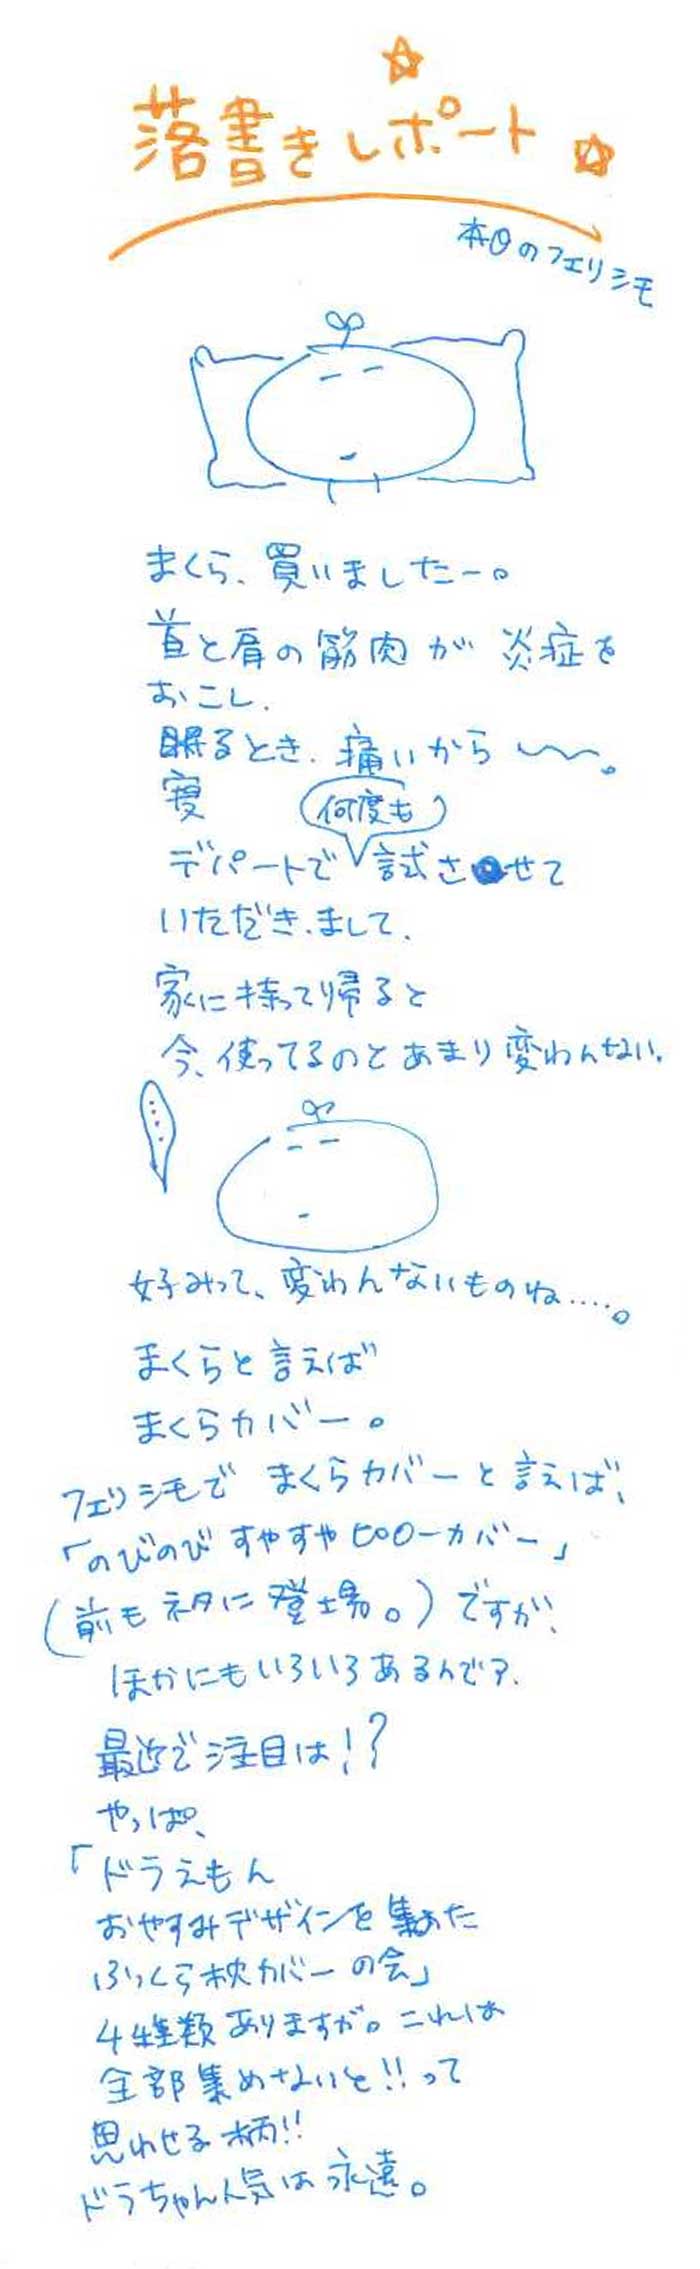 落書きレポート
本日のフェリシモ
まくら、買いましたー。
首と肩の筋肉が炎症を
おこし、
眠るとき、痛いから〜〜。
寝
何度も
デパートで試させて
いただきまして、
家に持って帰ると
今、使ってるのとあまり変わんない。
・・・・
好みって、変わんないものね……。
まくらと言えば
まくらカバー。
フェリシモで まくらカバーと言えば、
「のびのびすやすやピローカバー」
(前もネタに登場。)ですが、
ほかにもいろいろあるんで、
最近で注目は!?
やっぱ、
「ドラえもん
おやすみデザインを集めた
ふっくら枕カバーの会」
4種類ありますが。これは
全部集めないと!!って
思わせる柄!!
ドラちゃん人気は永遠。